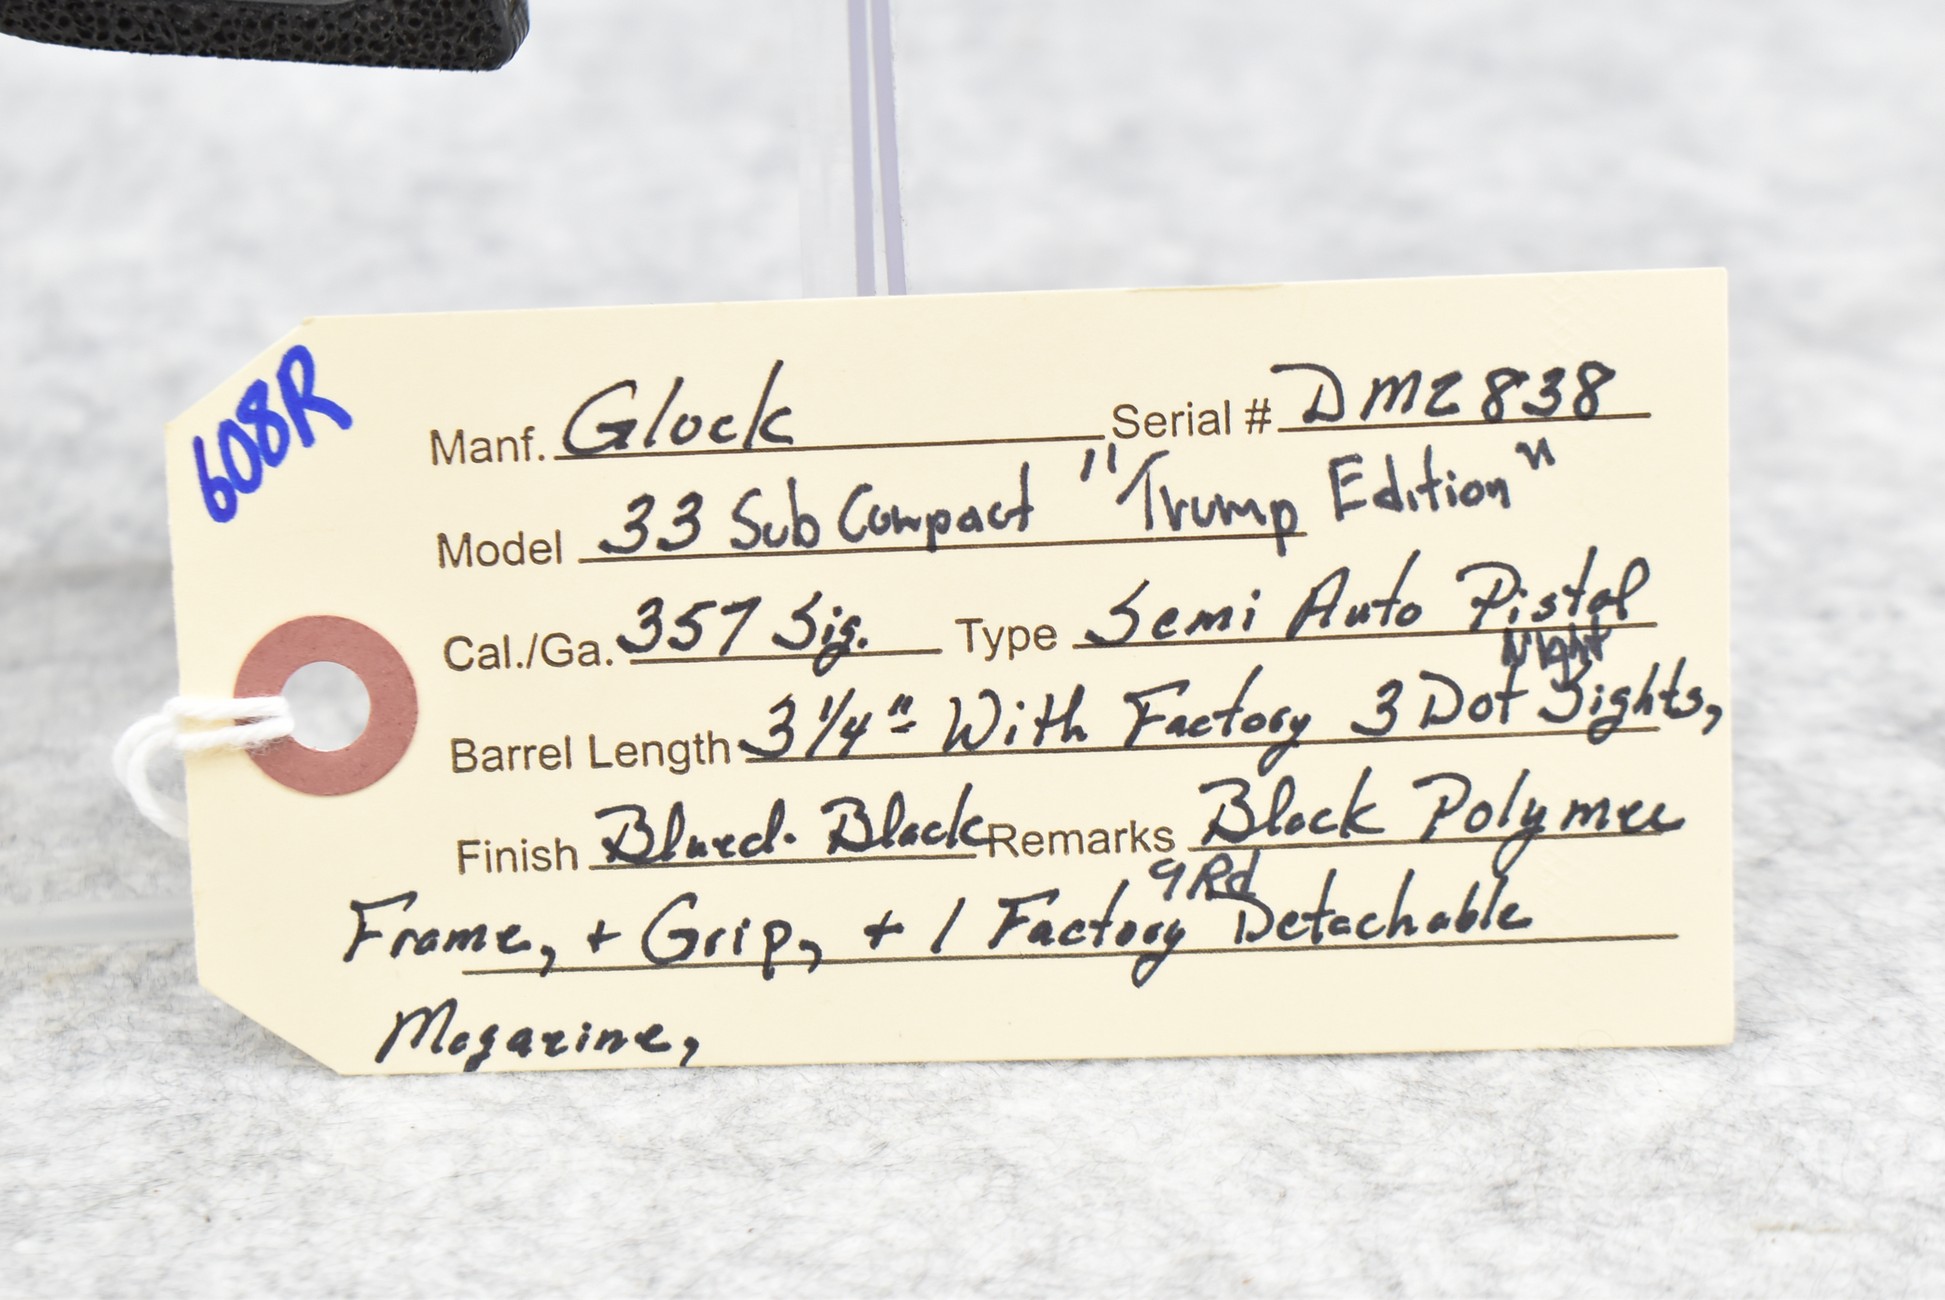 608R
Manf. Glock Serial # DMZ838
Model 33 Sub Compact "Trump Edition"
Cal./Ga. 357 Sig. Type Semi Auto Pistol
Night
Barrel Length 3 1/4" - With Factory 3 Dot Sights,
Finish Blued. Black Remarks Black Polymer
9 Rd
Frame, + Grip, + 1 Factory Detachable
Magazine,